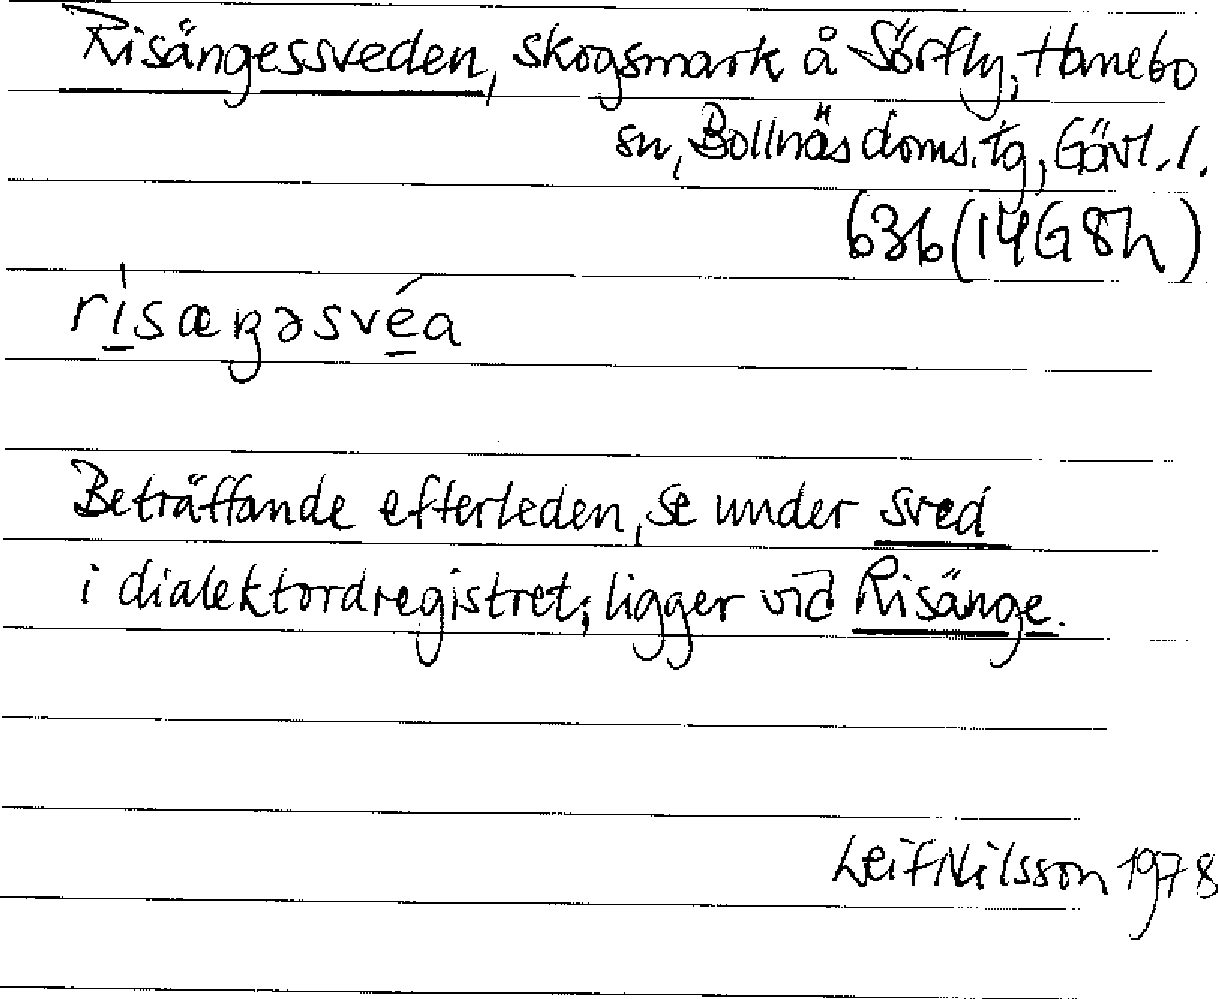 Risängessveden, skogsmark å Sörfly, Hanebo
sn, Bollnäs doms. tg, Gävl. l.
636 (14G 8h)
rísæŋəsvéa
Beträffande efterleden, se under sved
i dialektordregistret; ligger vid Risänge.
Leif Nilsson 1978